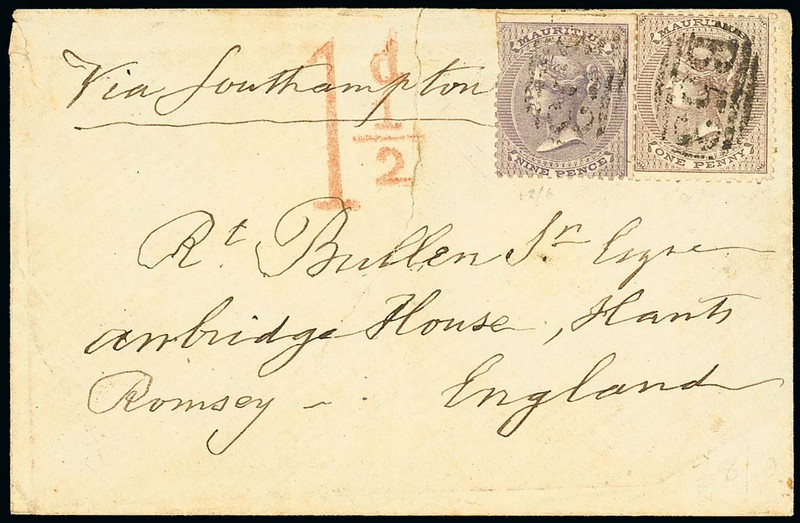 Via Southampton
1d 1/2
MAURITIUS
NINE PENCE
MAURITIUS
ONE PENNY
Rt. Bullen Sr Esqre
Anbridge House, Hants
Romsey - England